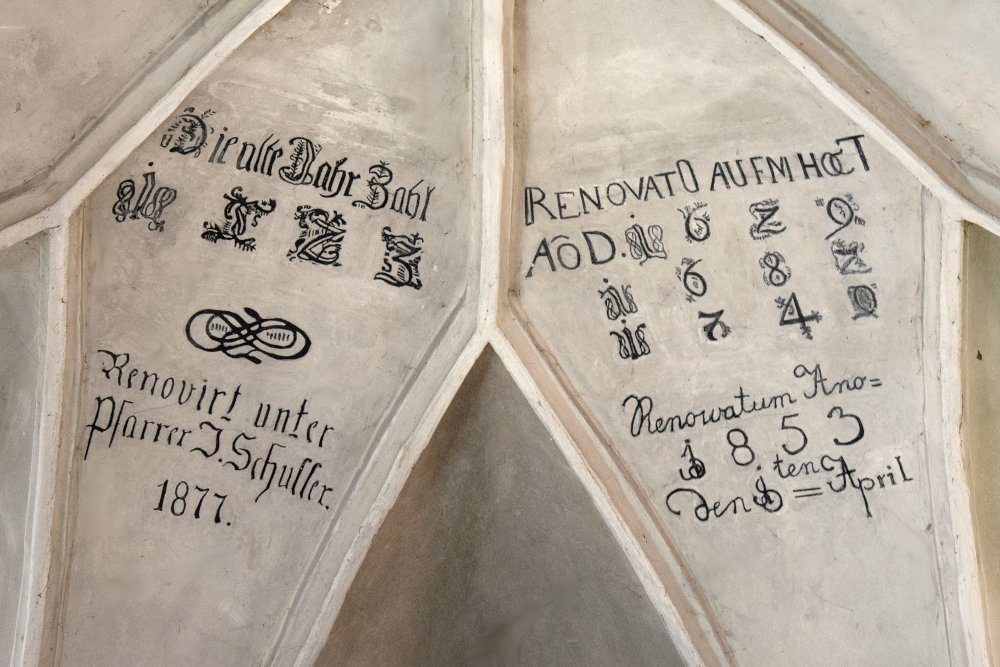 Die alte Jahr Zahl
Renovirt unter
Pfarrer J. Schuller.
1877.
RENOVATO AUFM HOCT
AÔD. 1 6 2 9
1 6 8 2
1 7 4
Renowatum Ano=
1 8 5 3
Den 1.ten = April